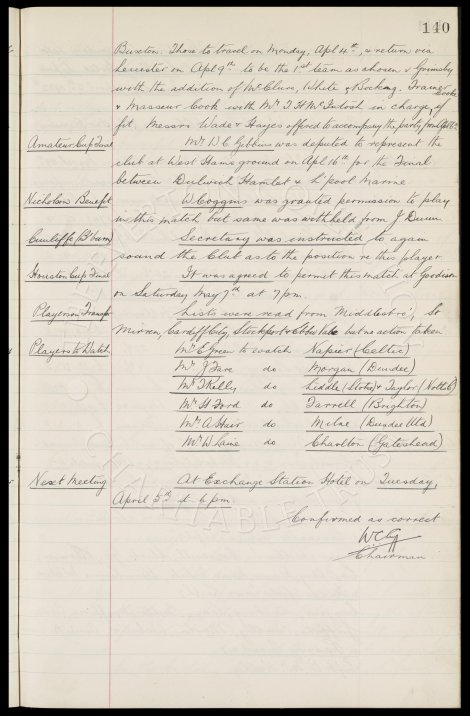 140
Buxton. Those to travel on Monday, Apl 4th, & return via
Leicester on Apl 9th to be the 1st team as chosen v Grimsby
with the addition of McClure, White & Bocking. Trainer
Cooke
& Masseur Cook with Mr T H McIntosh in charge, if
fit. Messrs Wade & Hayes offered to accompany the party from Apl 6th.
Amateur Cup Final Mr W C Gibbins was deputed to represent the
club at West Hams ground on Apl 16th for the Final
between Dulwich Hamlet & L'pool Marine
Nicholson Benefit W Coggins was granted permission to play
in this match but same was withheld from J Dunn
Cunliffe (B'burn) Secretary was instructed to again
sound the Club as to the position re this player
Houston Cup Final It was agreed to permit this match at Goodison
on Saturday May 7th at 7 pm.
Players on Transfer Lists were read from Middlesbro', St
Mirren, Cardiff City, Stockport & but no action taken
Players to Watch Mr E Green to watch Napier (Celtic)
Mr J Fare do Morgan (Dundee)
Mr T Kelly do Liddle (Stoke) & Taylor (Notts C)
Mr H Ford do Farrell (Brighton)
Mr A Hair do Milne (Dundee Utd)
Mr W Laine do Charlton (Gateshead)
Next Meeting At Exchange Station Hotel on Tuesday,
April 5th at 6 pm.
Confirmed as correct
WCG
Chairman
CHARITABLE TRUST